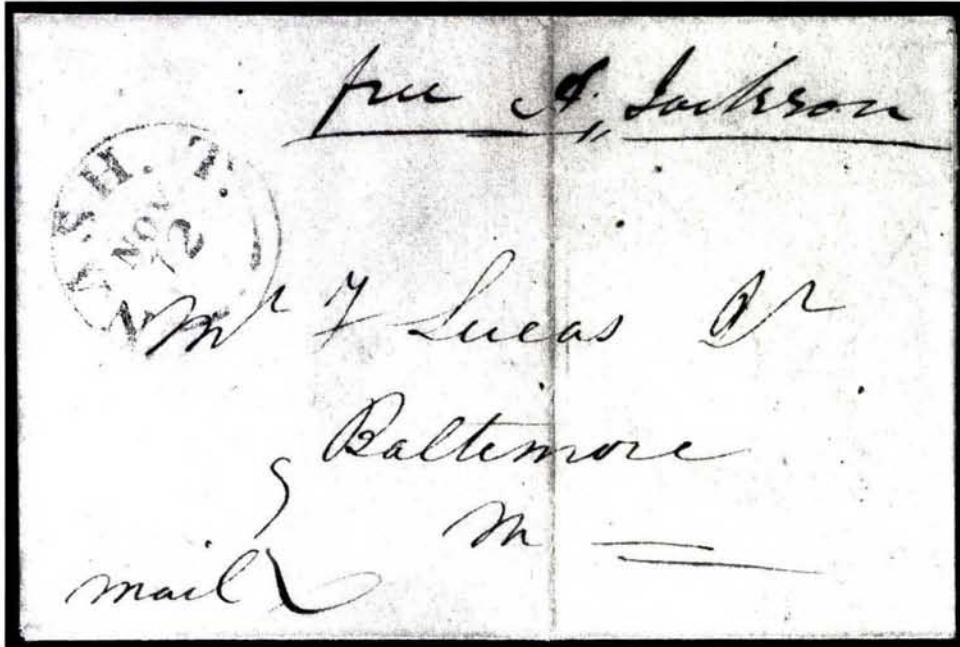 free A. Jackson
NASH. T.
NOV
12
Mr F Lucas Jr
Baltimore
M
mail